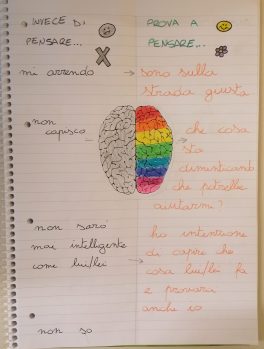 INVECE DI
PENSARE...
PROVA A
PENSARE...
mi arrendo
sono sulla
strada giusta
non
capisco
che cosa
sto
dimenticando
che potrebbe
aiutarmi?
non sarò
mai intelligente
come lui/lei
ho intenzione
di capire che
cosa lui/lei fa
e proverò
anche io
non so